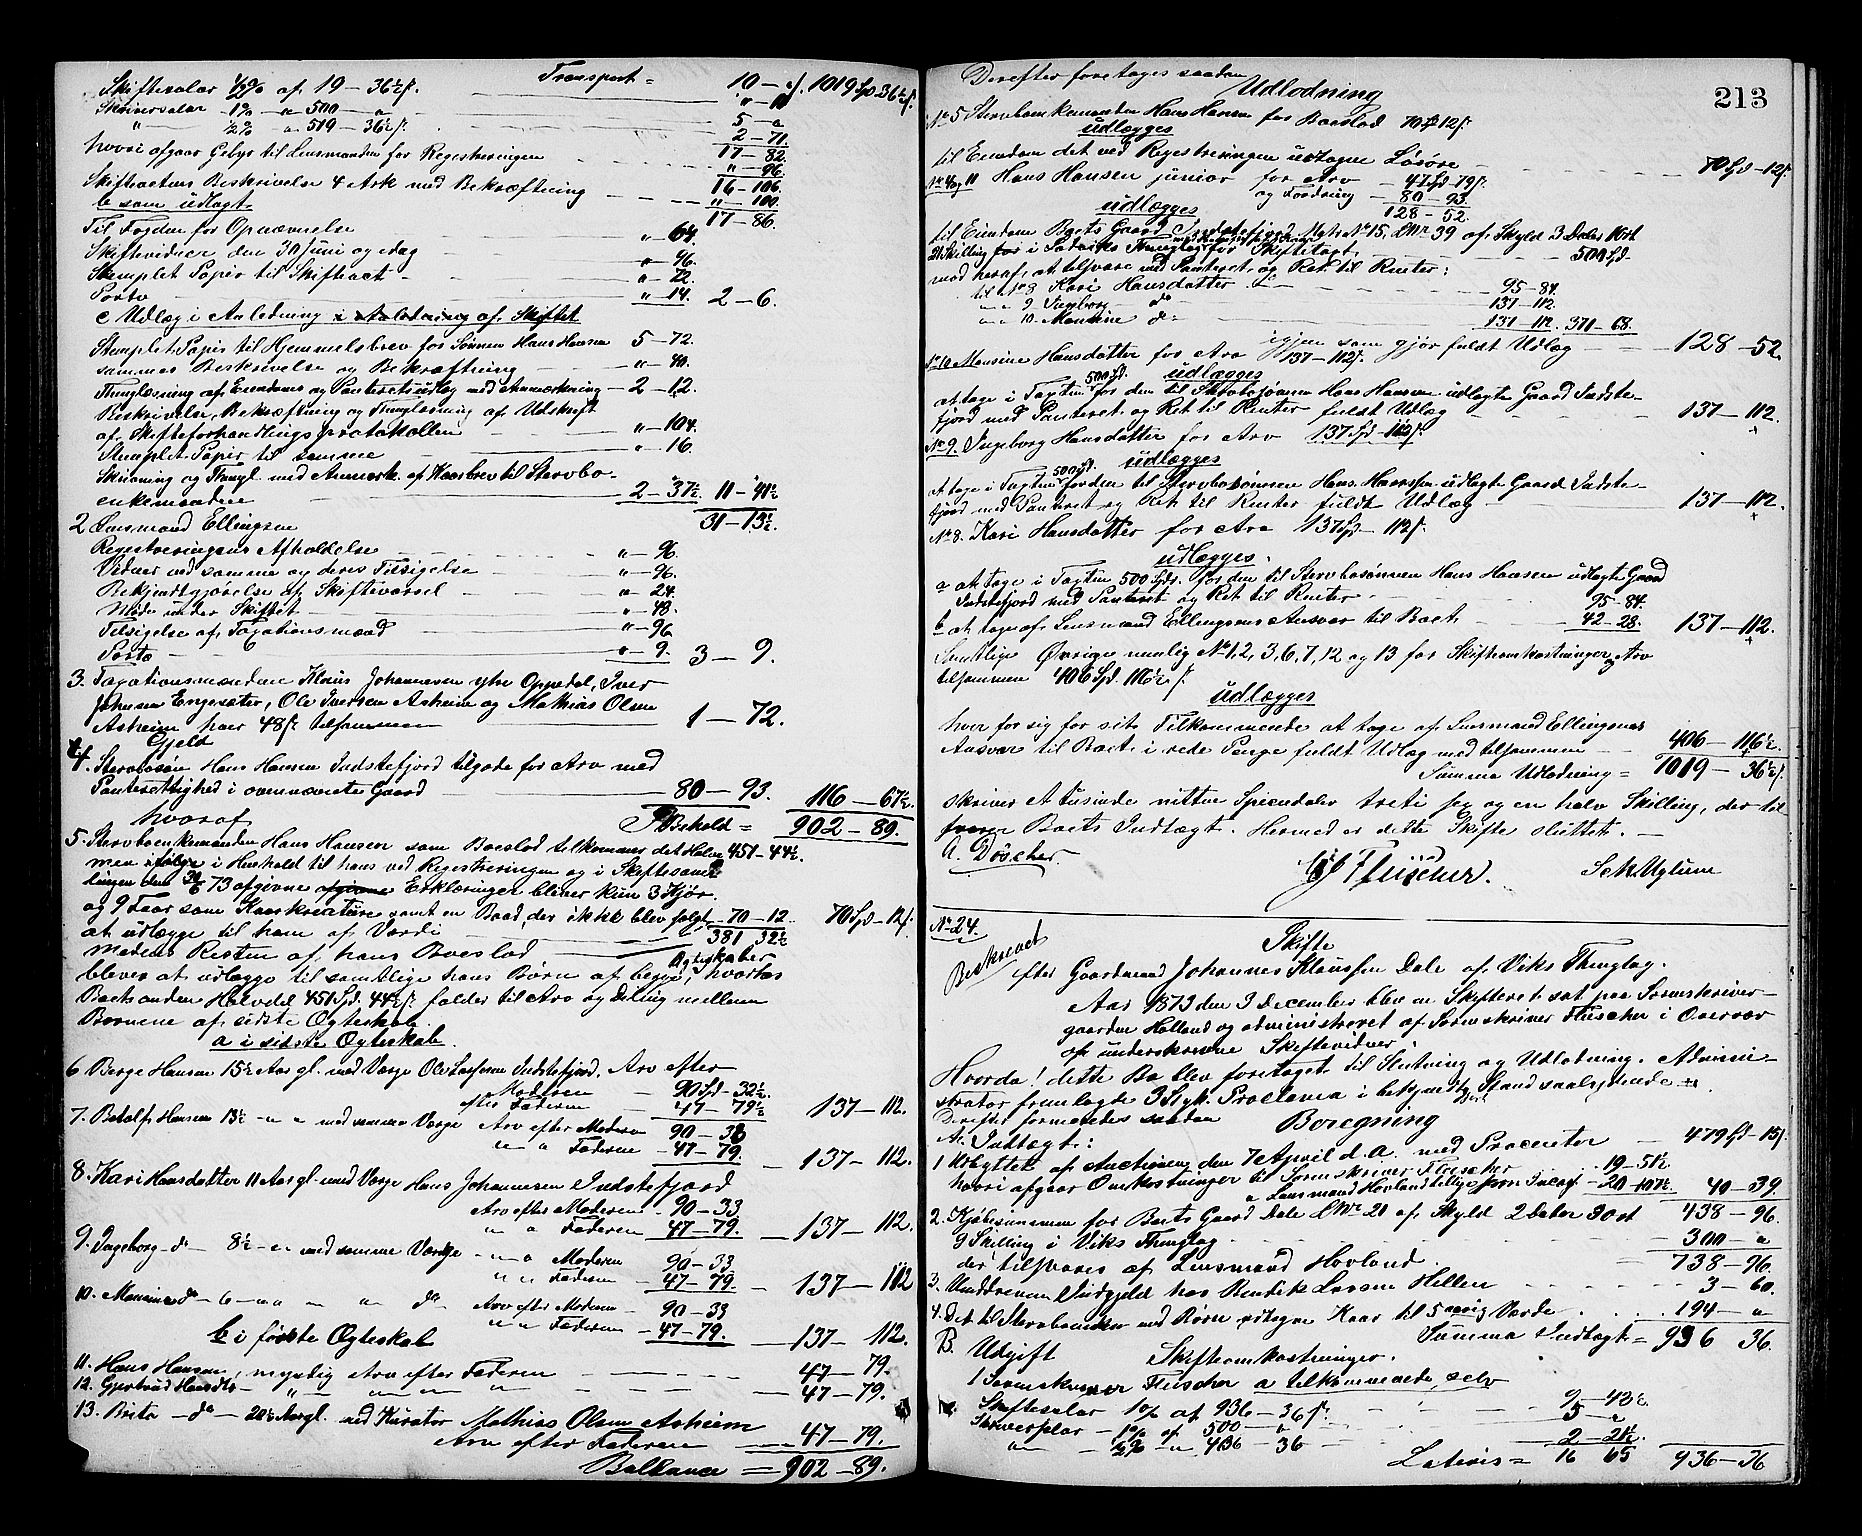 Transport = 10 – " f. 1019 Spd 36½ f.
Skiftesalær ½% af 19 – 36½ f. " – 11
Skriversalær 1% – " 500 – " 5 – "
" ½% " 519 – 36½ f. 2 – 71
17 – 82
hvori afgaar Gebyr til Lensmanden for Registreringen " – 96
16 – 106
Skifteactens Beskrivelse 4 Ark med Bekræftning " – 100
17 – 86
b som udlagt
Til Fogden for Opnævnelse " – 64
Skiftevidner den 30 Juni og idag " – 96
Stemplet Papir til Skifteact " – 72
Porto " – 14. 2 – 6.
c Udlæg i Anledning af Skiftet
Stemplet Papir til Hjemmelsbrev for Sønnen Hans Hansen 5 – 72.
sammes Beskrivelse og Bekræftning " – 40.
Thinglæsning af Eiendoms og Panteretsudlæg med Anmærkning – 2 – 12.
Beskrivelse, Bekræftning og Thinglæsning af Udskrift
af Skifteforhandlingsprotokollen " – 104.
Stemplet Papir til samme " – 16.
Skrivning og Thingl. med Anmærk. af Kaarbrev til Stervbo-
enkemanden 2 – 37½ 11 – 41½
31 – 13½
2 Lensmand Ellingsen
Registreringens Afholdelse " – 96.
Vidner ved samme og deres Tilsigelse " – 96.
Bekjendtgjørelse af Skiftevarsel " – 24.
Møde under Skiftet " – 48.
Tilsigelse af Taxationsmænd " – 96
Porto " – 9. 3 – 9.
3. Taxationsmændene Klaus Johannesen ytre Oppedal, Iver
Johnsen Engesæter, Ole Iversen Asheim og Mathias Olsen
Asheim hver 48 f. tilsammen 1 – 72.
Gjeld
4. Stervbosøn Hans Hansen Indstefjord tilgode for Arv med
Panterettighed i ovennævnte Gaard 80 – 93. 116 – 67½.
hvoraf Behold = 902 – 89.
5. Stervboenkemanden Hans Hansen som Boeslod tilkommer det Halve 451 – 44½.
men ifølge i Henhold til hans ved Registreringen og i Skiftesam-
lingen den 30/6 73 afgivne Erklæringer bliver kun 3 Kjør
og 9 Faar som Kaarskreature samt en Baad, der ikke blev solgt
at udlægge til ham af Værdi 70 – 12. 70 Spd – 12 f.
381 32½
medens Resten af hans Boeslod
bliver at udlægge til samtlige hans Børn af begge Ægteskaber, hvortas
Boets anden Halvdel 451 Spd. 44½ f. falder til Arv og Deling mellem
Børnene af sidste Ægteskab.
a i sidste Ægteskab.
6 Børge Hansen 15½ Aar gl. med Værge Ole Indstefjord. Arv efter
Moderen 90 Spd – 32½
efter Faderen 47 – 79½ 137 – 112.
7. Botolf Hansen 13½ – " " med samme Værge Arv efter Moderen 90 – 33
" " Faderen 47 – 79. 137 – 112.
8. Kari Hansdatter 11 Aar gl. med Værge Hans Johannesen Indstefjord
Arv efter Moderen 90 – 33
" " Faderen 47 – 79. 137 – 112.
9. Ingeborg do 8½ – " med samme Værge " " Moderen 90 – 33
" " Faderen 47 – 79. 137 – 112
10. Monsine do – 6 – " " " do Arv efter Moderen 90 – 33
" " Faderen 47 – 79. 137 – 112.
b i første Ægteskab
11. Hans Hansen, myndig Arv efter Faderen 47 – 79.
12. Gjertrud Hansdtr – " – " " " 47 – 79.
13. Brita – do – Aar gl. med Kurator Mathias Olsen Asheim
Arv efter Faderen 47 – 79.
Ballance = 902 – 89.
213
Derefter foretages saadan
Udlodning
No 5 Stervboenkemanden Hans Hansen for Boeslod 70 Spd 12 f.
udlægges
til Eiendom det ved Registreringen udtagne Løsøre 70 Spd – 12 f.
No 4 og 11 Hans Hansen junior for Arv – 47 Spd – 79 f.
og Fordring – 80 – 93.
128 – 52.
udlægges
til Eiendom Boets Gaard Indstefjord Matr No 15, LNr 39 af Skyld 3 Daler 1 Ort
21 Skilling i Ladviks Thinglag for Skiftetaxt 500 Spd.
mod heraf, at tilsvare med Panteret og Ret til Renter:
til No 8 Kari Hansdatter 95 – 84.
" " 9 Ingeborg do 137 – 112.
" " 10. Monsine do 137 – 112. 371 – 68.
igjen som gjør fuldt Udlæg 128 – 52.
No 10 Monsine Hansdatter for Arv 137 – 112 f.
udlægges
at tage i Taxten 500 Spd. for den til Stervbosønnen Hans Hansen udlagte Gaard Indste-
fjord med Panteret og Ret til Renter fuldt Udlæg 137 – 112.
No 9. Ingeborg Hansdatter for Arv 137 Spd – 112 f.
udlægges
at tage i Taxten 500 Spd. for den til Stervbosønnen Hans Hansen udlagte Gaard Indste-
fjord med Panteret og Ret til Renter fuldt Udlæg 137 – 112.
No 8. Kari Hansdatter for Arv 137 Spd – 112 f.
udlægges.
a at tage i Taxten 500 Spd. for den til Stervbosønnen Hans Hansen udlagte Gaard
Indstefjord med Panteret og Ret til Renter 95 – 84.
b at tage af Lensmand Ellingsens Ansvar til Boet 42 – 28. 137 – 112.
Samtlige Øvrige nemlig No 1, 2, 3, 6, 7, 12 og 13 for Skifteomkostninger og Arv
tilsammen 406 Spd. 116½ f.
udlægges
hver for sig for sit Tilkommende at tage af Lensmand Ellingsens
Ansvar til Boet i rede Penge fuldt Udlæg med tilsammen 406 – 116½.
Summa Udlodning = 1019 – 36½ f.
skriver et tusinde nitten Speciedaler treti sex og en halv Skilling, der til-
svarer Boets Indtægt. Hermed er dette Skifte sluttet. –
A. Döscher. Fleischer. Sek Mylum
No 24.
Beskrevet
Skifte
efter Gaardmand Johannes Klaussen Dale af Viks Thinglag.
Aar 1873 den 3 December blev en Skifteret sat paa Sorenskriver-
gaarden Holland og administreret af Sorenskriver Fleischer i Overvær
af underskrevne Skiftevidner
Hvorda! dette Bo blev foretaget til Slutning og Udlodning. Admini-
strator fremlagde 3 Stk. Proclama i bekjendtgjort Stand saalydende
Derefter formeredes saadan Boregning
A. Indtægt:
1 Udbyttet af Auctionen den 7 April d. A. med Procenter 479 Spd – 15 f.
hvori afgaar Omkostninger til Sorenskriver Fleischer 19 – 51½
" Lensmand Hovland tilligemed Incas. 20 – 107½ 40 – 39.
438 – 96.
2. Kjøbesummen for Boets Gaard Dale LNr 20 af Skyld 2 Daler 3 Ort
9 Skilling i Viks Thinglag 300 – "
738 – 96.
der tilsvares af Lensmand Hovland.
3. Uinddreven Indgjeld hos Bendik Larsen Hellen 3 – 60.
4. Det til Stervboenken med Børn udtagne Kaar til 5 aarig Værdi 194 – "
Summa Indtægt = 936 36.
B. Udgift Skifteomkostninger.
1 Sorenskriver Fleischer a tilkommende selv
Skiftesalær 1% af 936 – 36 f. 9 – 43½.
Skriversalær – 1% af 500 – " 5 – "
" ½% " 436 – 36 2 – 21½
Lateris = 16 65 936 – 36